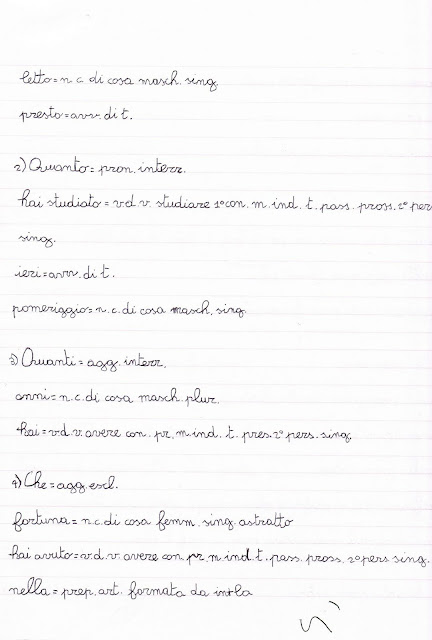 letto = n.c. di cosa masch. sing.
presto = avv. di t.
2) Quanto = pron. interr.
hai studiato = v.d.v. studiare 1° con. m. ind. t. pass. pross. 2° per
sing.
ieri = avv. di t.
pomeriggio = n.c. di cosa masch. sing.
3) Quanti = agg. interr.
anni = n.c. di cosa masch. plur.
hai = v.d.v. avere con. pr. m. ind. t. pres. 2° pers. sing.
4) Che = agg. escl.
fortuna = n.c. di cosa femm. sing. astratto
hai avuto = v.d.v. avere con. pr. m. ind. t. pass. pross. 2° pers. sing.
nella = prep. art. formata da in+la